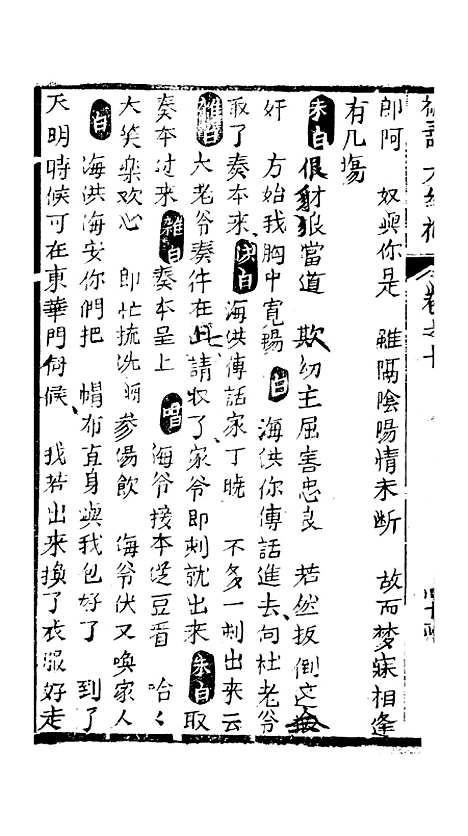 郎阿　奴與你是　雖隔陰陽情未断　故而梦寐相逢
有几塲
朱白　恨豺狼當道　欺幼主屈害忠良　若然扳倒
奸　方始我胸中寬暢　白　海洪你傳話進去向杜老爷
取了奏本來　洪白　海洪傳話家丁曉　不多一刻出來云
雜白　大老爷奏件在此請收了家爷即刻就出來　朱白　取
奏本过來　雜白　奏本呈上　唱　海爷接本從豆看　哈々
大笑樂欢心　即忙梳洗用參湯飲　海爷伏又喚家人
白　海洪海安你們把　帽布直身與我包好了　到了
天明時候可在東華門伺候　我若出來换了衣服好走